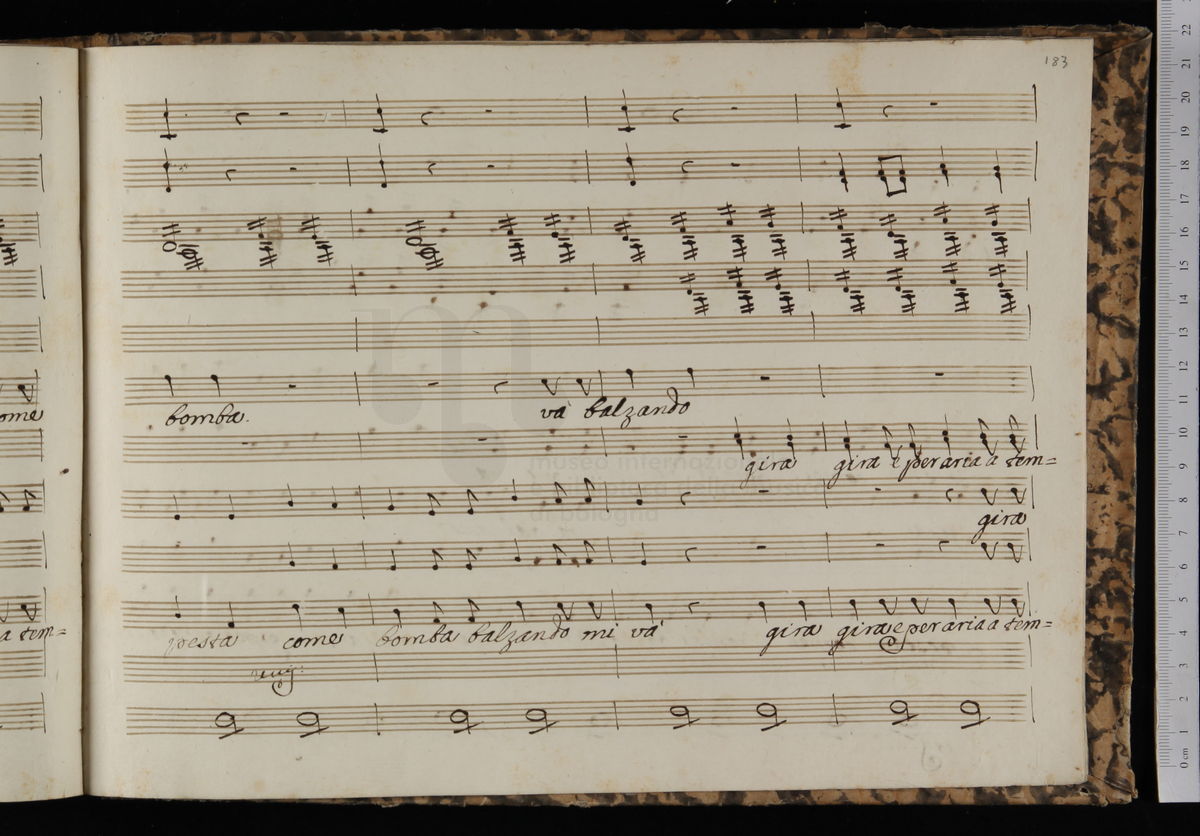 183
ome
bomba.
và balzando
gira gira e per aria a tem=
gira
a tem=
pesta come bomba balzando mi và gira gira e per aria a tem=
unis:
museo internazionale
di bologna
22
21
20
19
18
17
16
15
14
13
12
11
10
9
8
7
6
5
4
3
2
1
0 cm